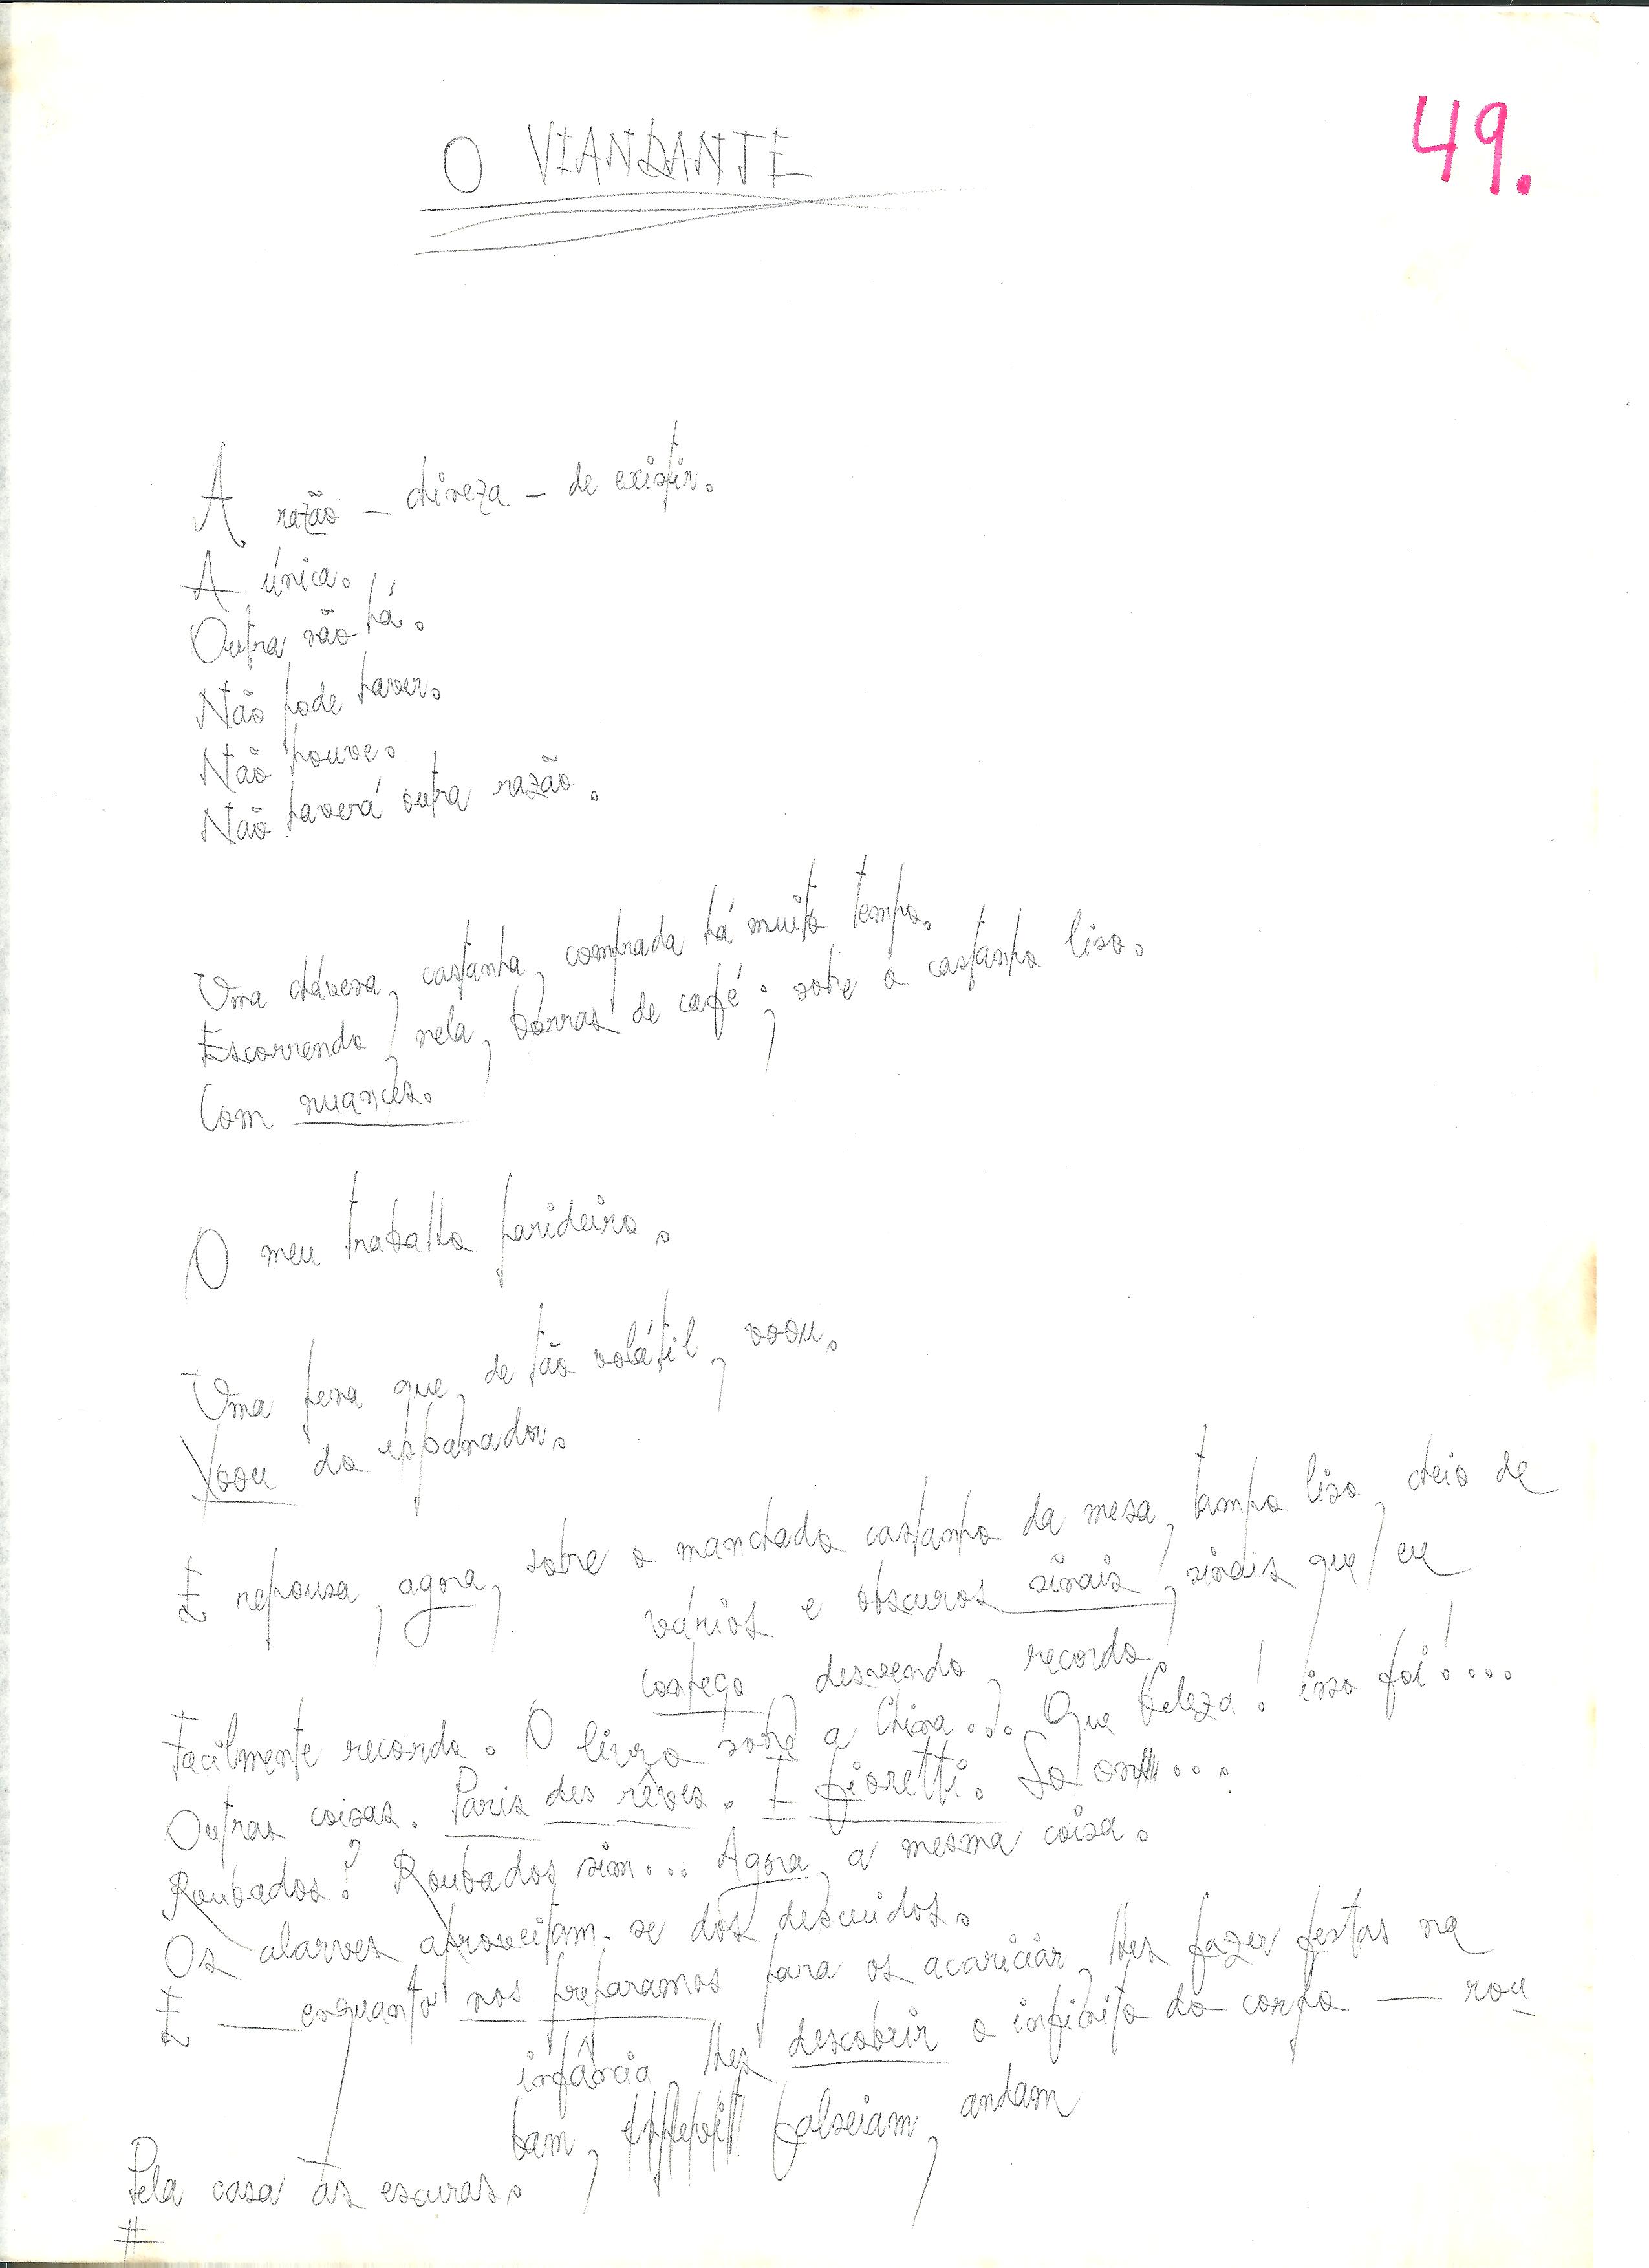 49.
O VIANDANTE
A razão – chineza – de existir.
A única.
Outra não há.
Não pode haver.
Não houve.
Não haverá outra razão.
Uma chávena, castanha, comprada há muito tempo.
Escorrendo, nela, borras de café; sobre o castanho liso.
Com nuances.
O meu trabalho parideiro.
Uma pena que, de tão volátil, voou.
Voou do espanador.
E repousa, agora, sobre o manchado castanho da mesa, tampo liso, cheio de
vários e obscuros sinais, sinais que eu
conheço, desvendo, recordo.
Facilmente recordo. O livro sobre a China... Que beleza! isso foi!...
Outras coisas. Paris des rêves. I Fioretti. So on...
Roubados? Roubados, sim... Agora, a mesma coisa.
Os alarves aproveitam-se dos descuidos.
E — enquanto nos preparamos para os acariciar, lhes fazer festas na
infância, lhes descobrir o infinito do corpo — rou
bam, falseiam, andam
Pela casa às escuras.
#